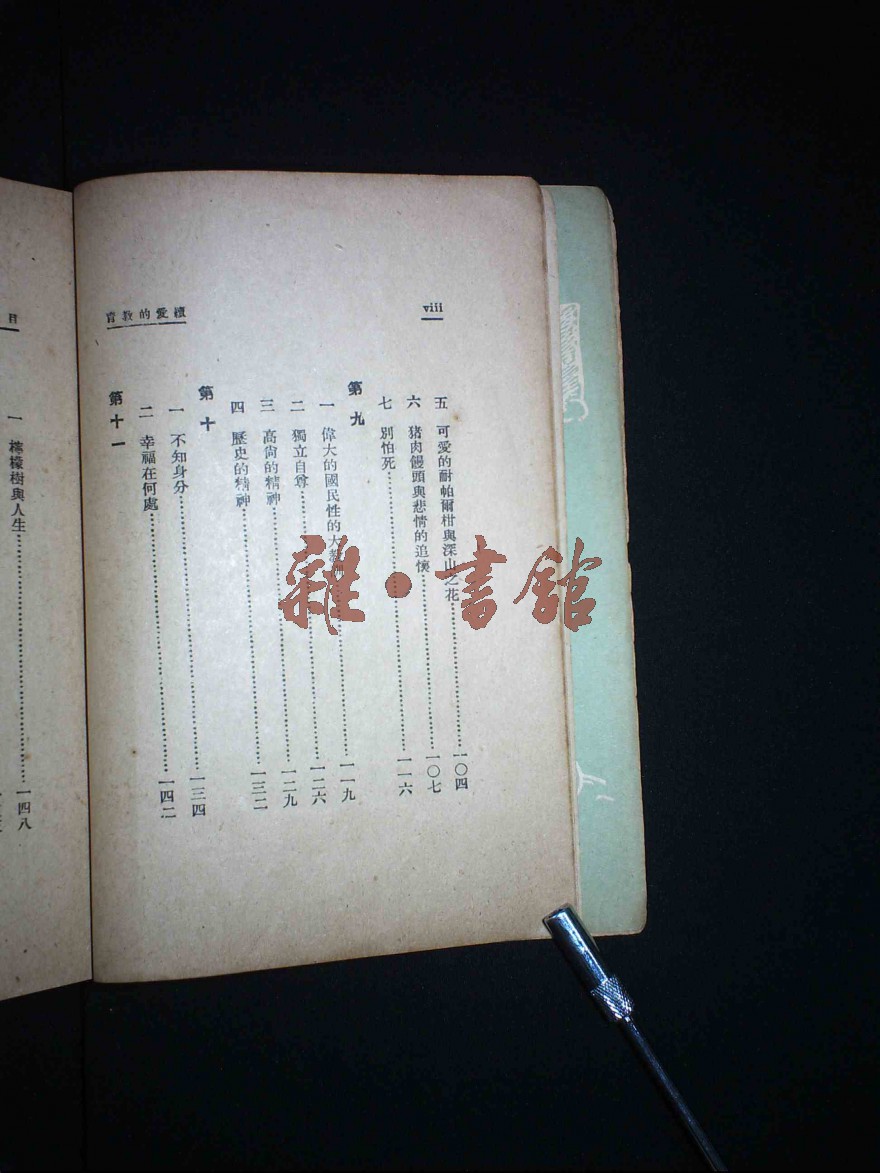 viii
續愛的教育
五 可愛的耐帕爾柑與深山之花 一〇四
六 猪肉饅頭與悲情的追懷 一〇七
七 別怕死 一一六
第九
一 偉大的國民性的大教訓 一一九
二 獨立自尊 一二六
三 高尙的精神 一二九
四 歷史的精神 一三二
第十
一 不知身分 一三四
二 幸福在何處 一四二
第十一
目
一 檸檬樹與人生 一四八
雜·書館